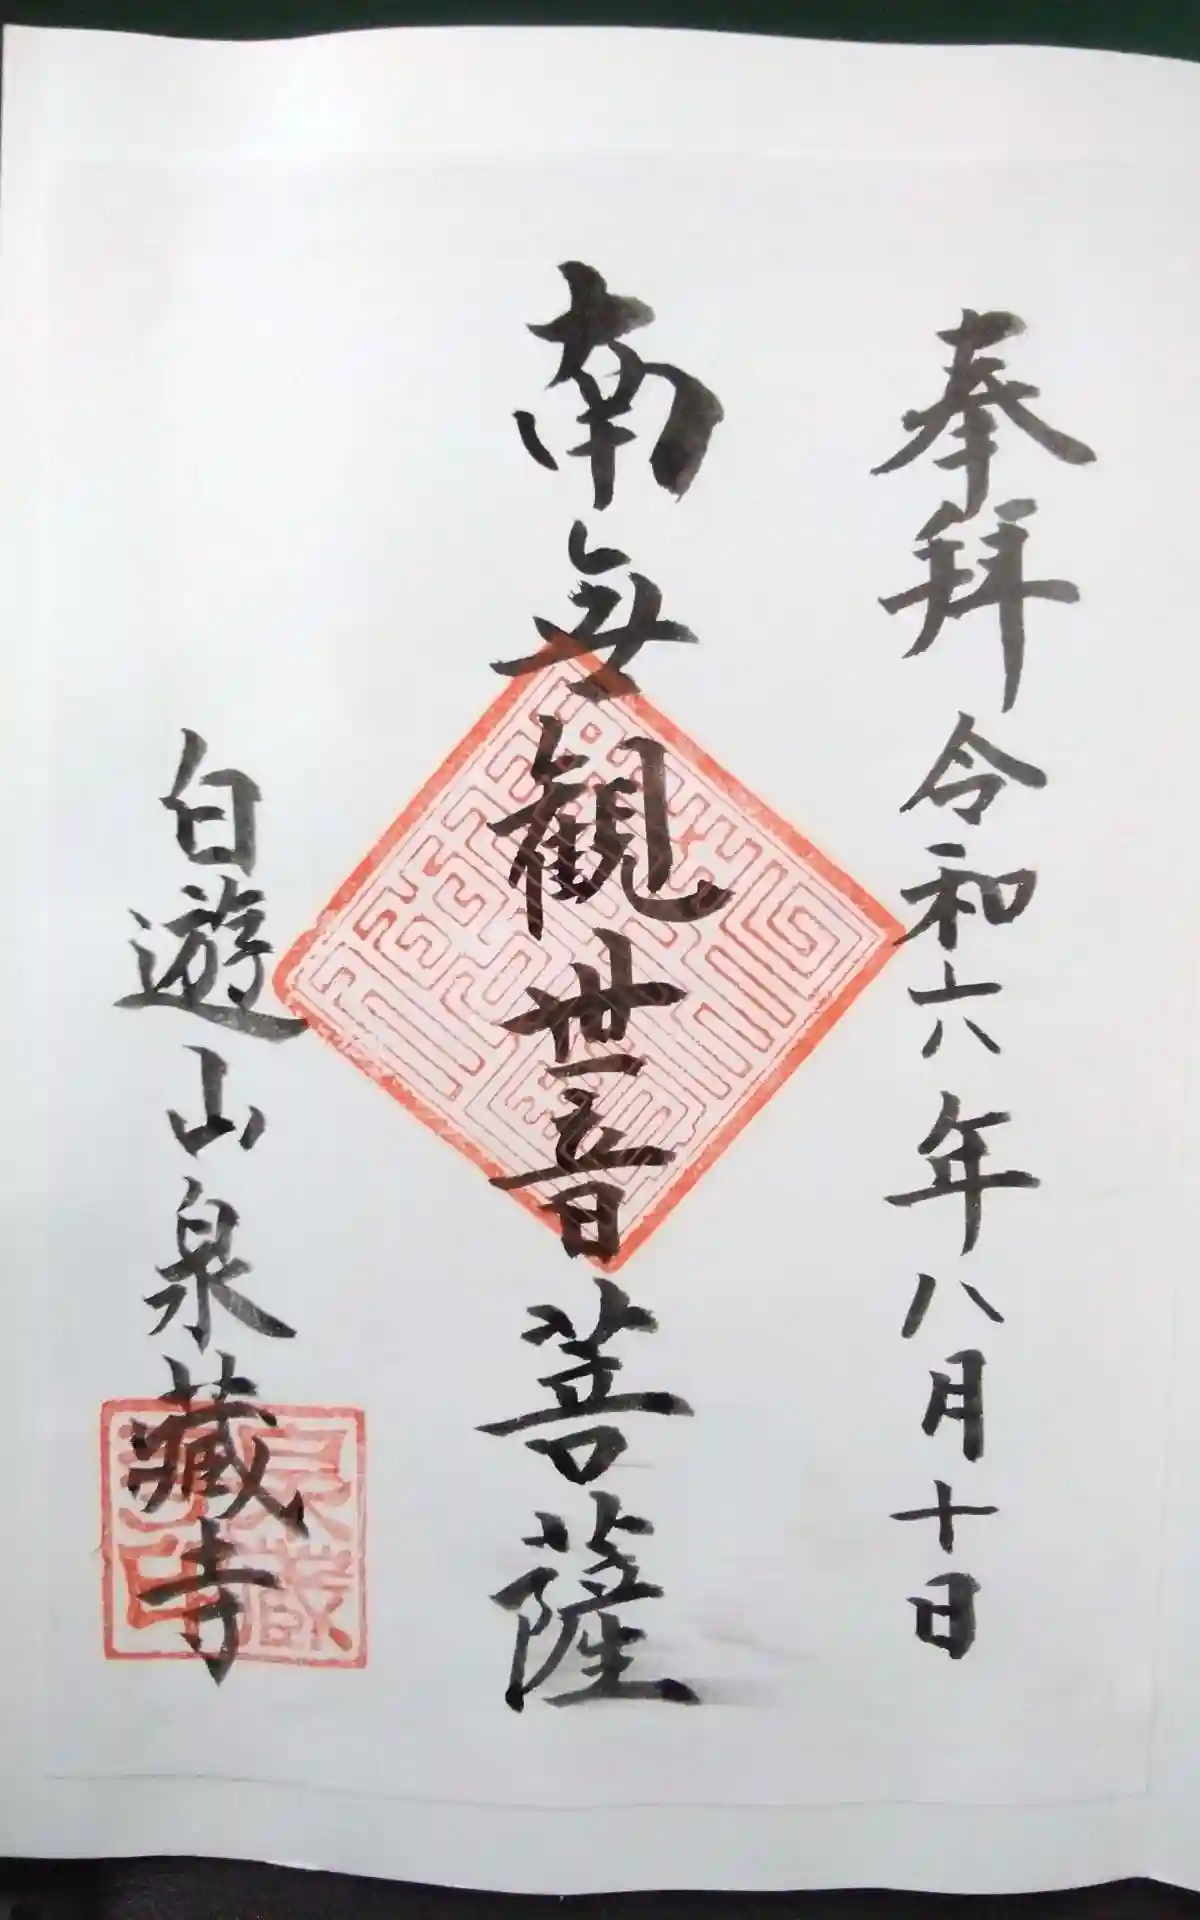 奉拜 令和六年八月十日
南無観世音菩薩
白遊山泉藏寺